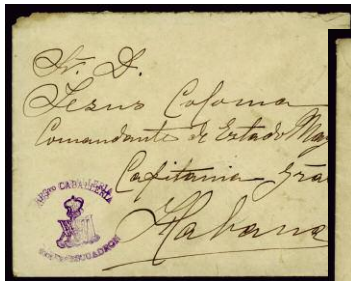 Sr. D.
Jesus Coloma
Comandante de Estado May
Capitania Gra
Habana
CABALLERIA
ESCUADRON